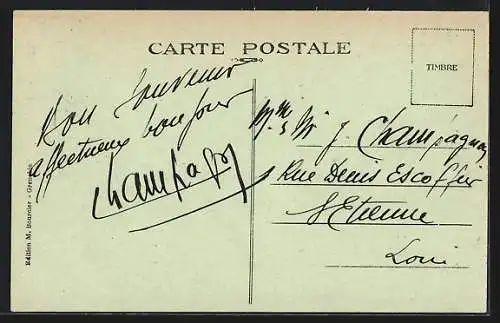 CARTE POSTALE
TIMBRE
Bon Souvenir
affectueux bonjour
Champagn
Mme & Mr J. Champagnon
1 Rue Denis Escoffier
St Etienne
Loire
Edition M. Bourcier - Grenoble